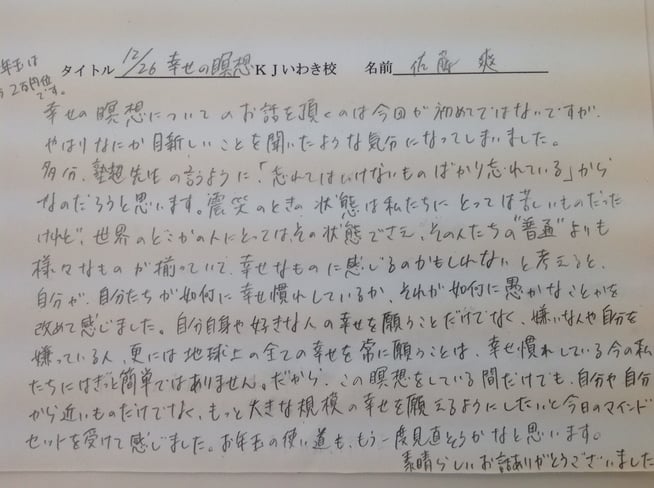 年玉は
2万円位
です。
タイトル 12/26 幸せの瞑想 KJいわき校 名前 佐藤 爽
幸せの瞑想についてのお話を頂くのは今回が初めてではないですが、
やはりなにか目新しいことを聞いたような気分になってしまいました。
多分、塾長先生の言うように、「忘れてはいけないものばかり忘れている」から
なのだろうと思います。震災のときの状態は私たちにとっては苦しいものだった
けれど、世界のどこかの人にとっては、その状態でさえ、その人たちの"普通"よりも
様々なものが揃っていて、幸せなものに感じるのかもしれないと考えると、
自分が、自分たちが如何に幸せ慣れしているか、それが如何に愚かなことかを
改めて感じました。自分自身や好きな人の幸せを願うことだけでなく、嫌いな人や自分を
嫌っている人、更には地球上の全ての幸せを常に願うことは、幸せ慣れしている今の私
たちにはきっと簡単ではありません。だから、この瞑想をしている間だけでも、自分や自分
から近いものだけでなく、もっと大きな規模の幸せを願えるようにしたいと今日のマインド
セットを受けて感じました。お年玉の使い道も、もう一度見直そうかなと思います。
素晴らしいお話ありがとうございました